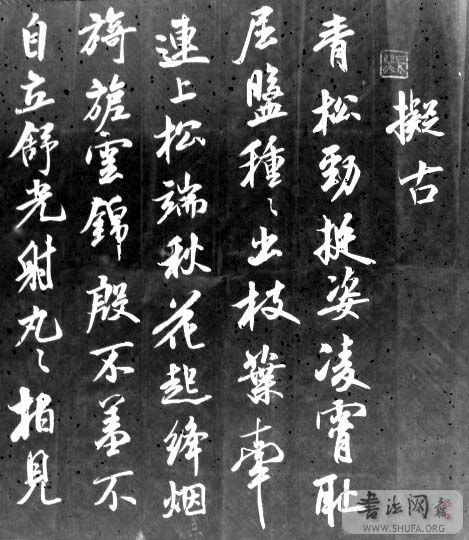 擬古
青松勁挺姿凌霄恥
屈盤種〻出枝葉牽
連上松端秋花起絳烟
旖旎雲錦殷不羞不
自立舒光射丸〻柏見
书法网
WWW.SHUFA.ORG